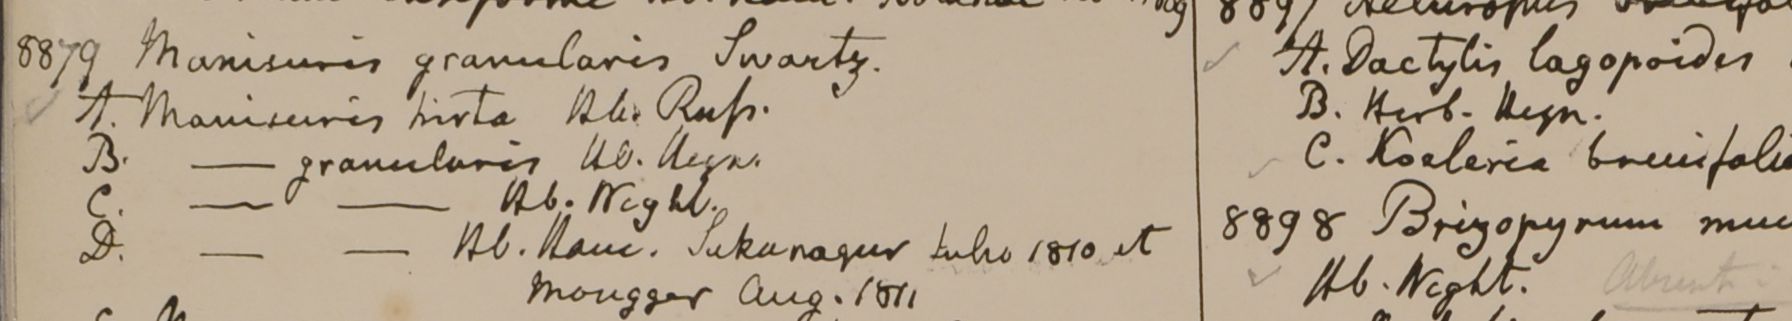 8879 Manisuris granularis Swartz.
A. Manisuris hirta Hb. Rufs.
B. — granularis Hb. Heyn.
C. — — Hb. Wight.
D. — — Hb. Ham. Sukanagur Julio 1810 et
Mougger Aug. 1811
8897
A. Dactylis lagopoides
B. Herb. Heyn.
C. Koeleria brevifolia
8898 Brizopyrum muc
Hb. Wight. Absent